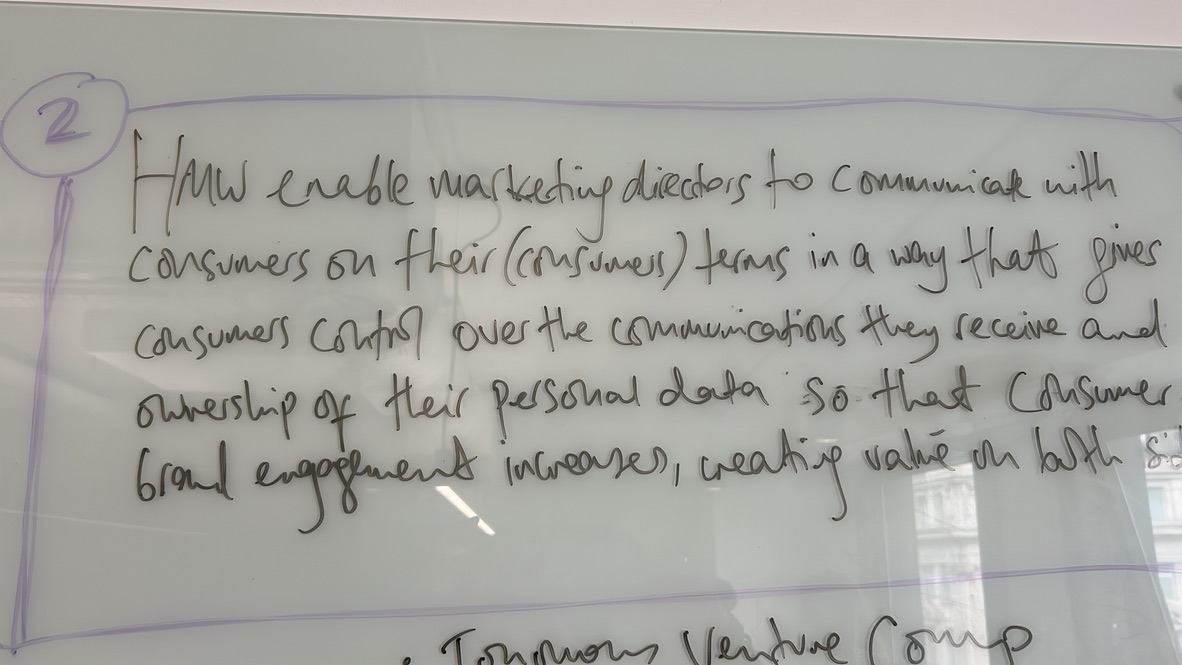 2
HMW enable marketing directors to communicate with
consumers on their (consumers) terms in a way that gives
consumers control over the communications they receive and
ownership of their personal data so that consumer
brand engagement increases, creating value on both
Venture Comp